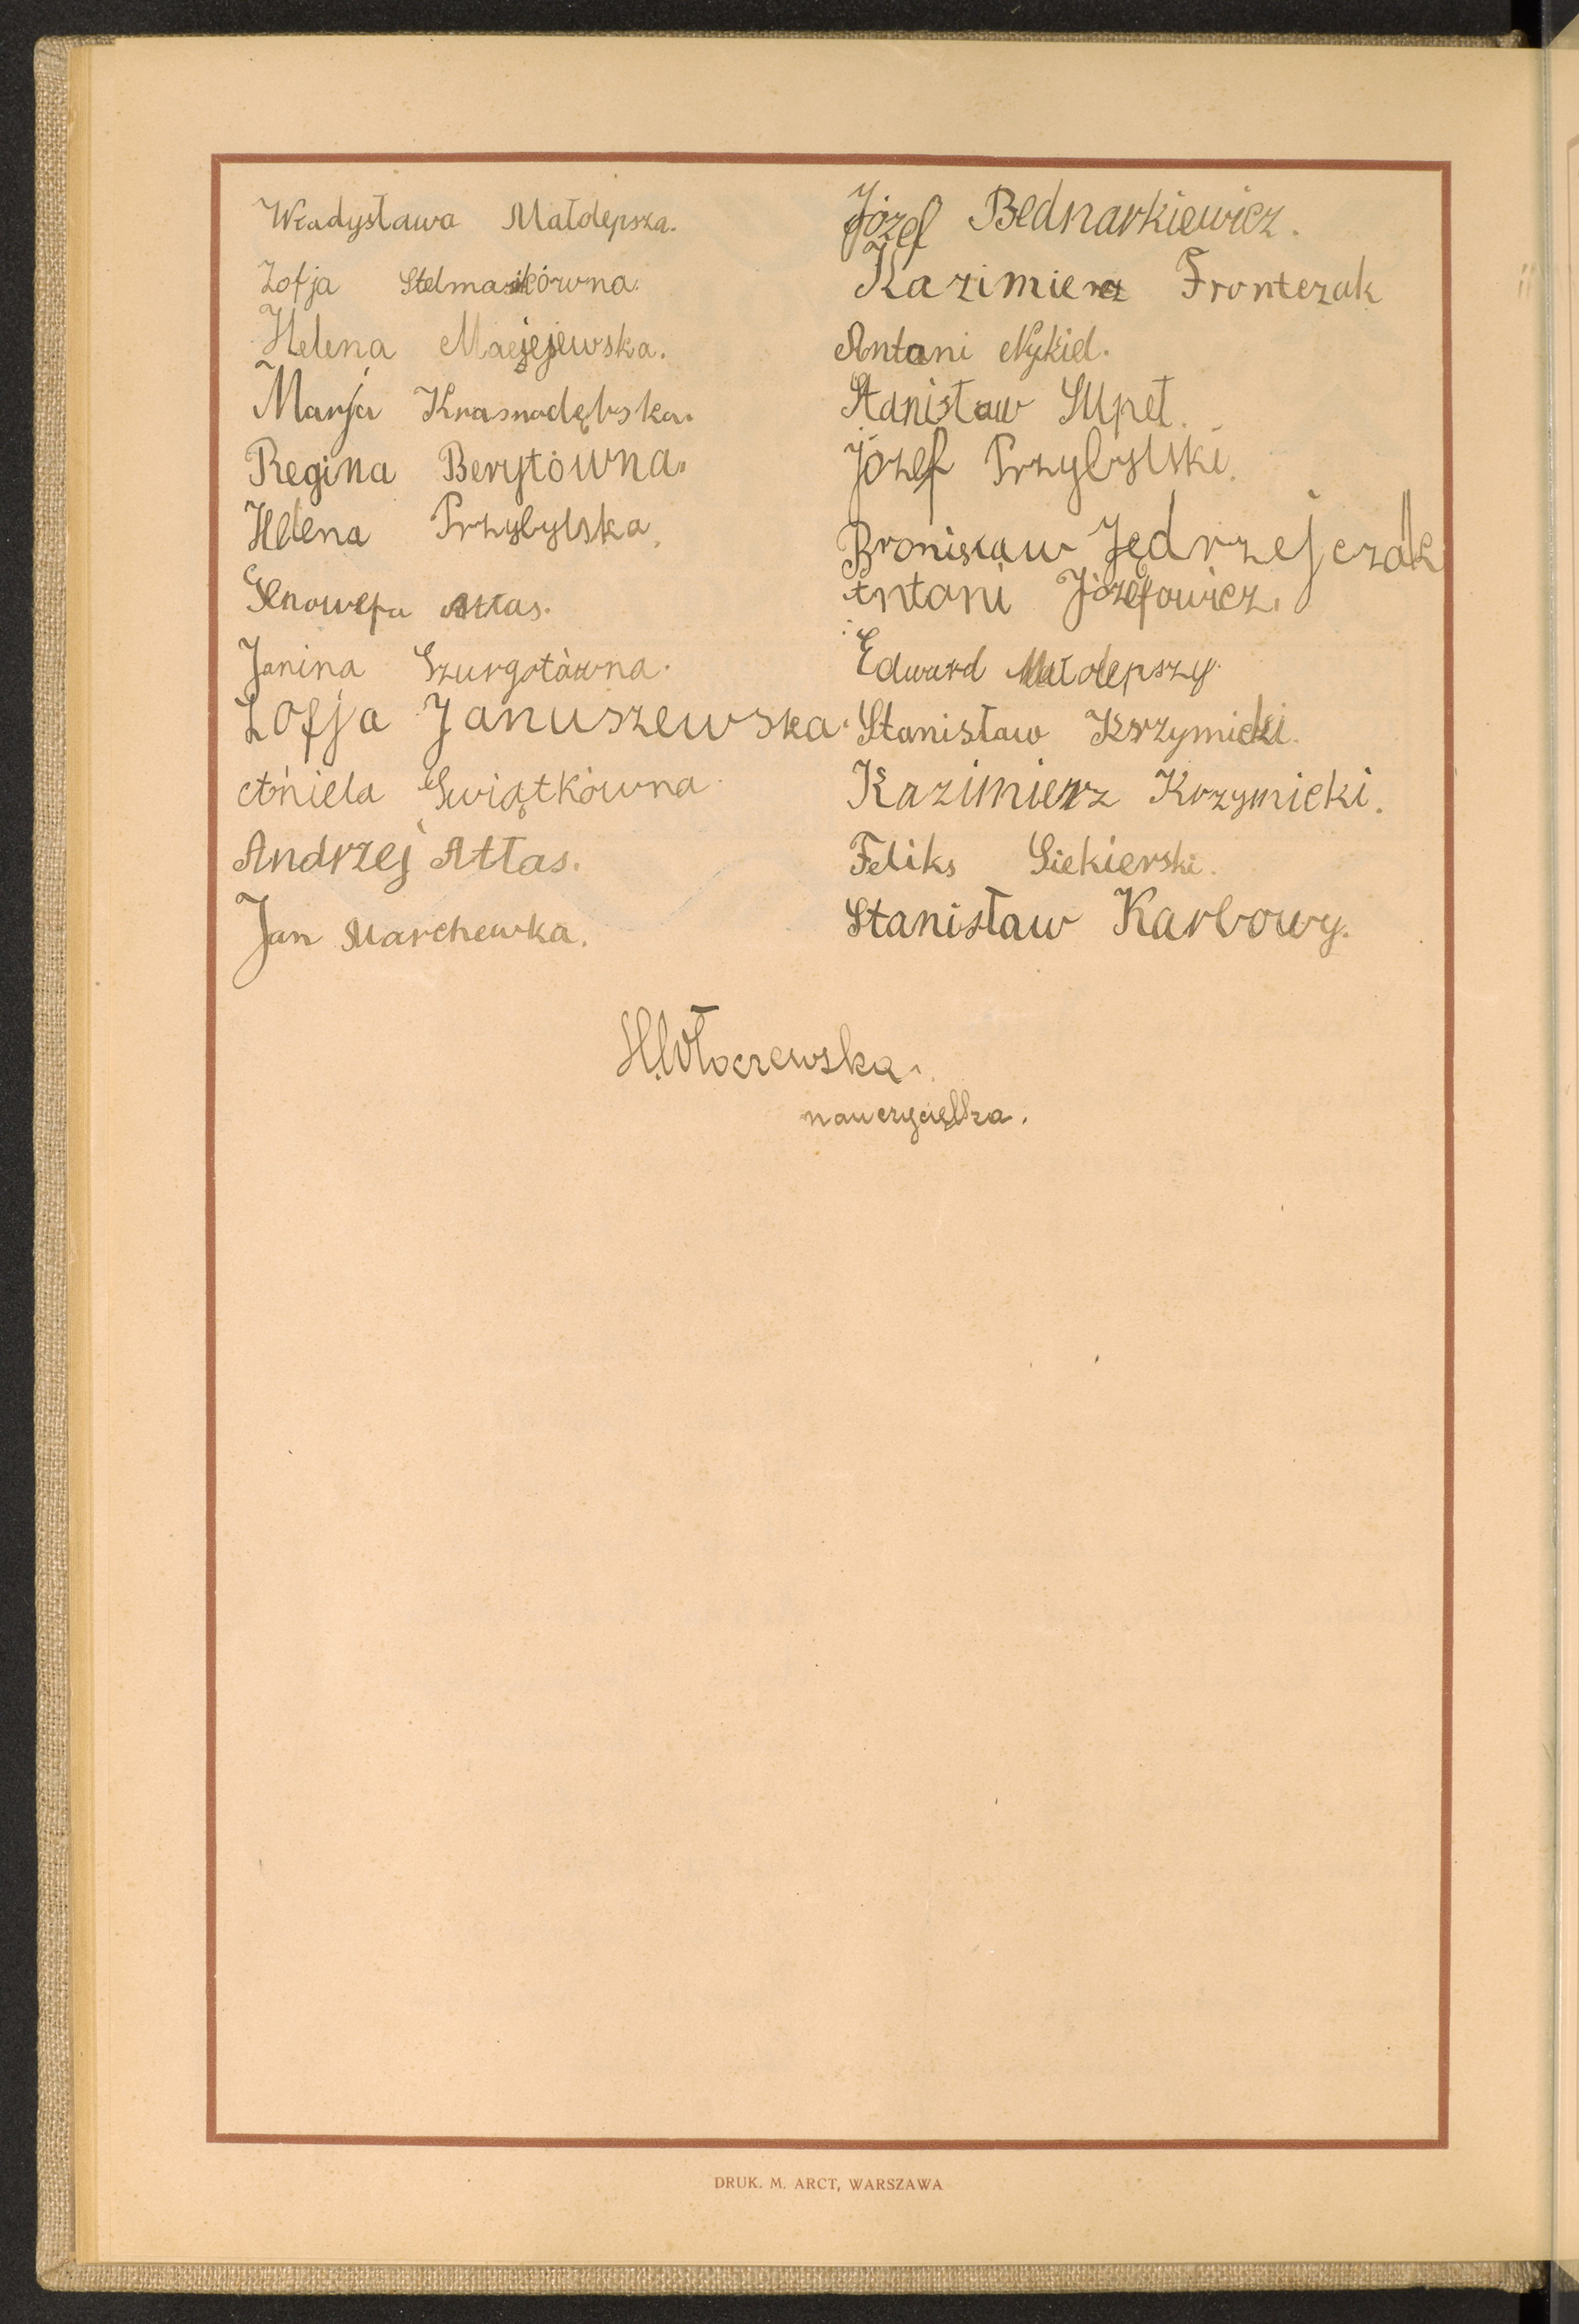 Władysława Małolepsza.
Zofja Stelmasikówna.
Helena Maciejewska.
Marja Krasnodębska.
Regina Berytówna.
Helena Przybylska.
Genowefa Attas.
Janina Szurgotówna.
Zofja Januszewska.
Aniela Świątkówna.
Andrzej Attas.
Jan Marchewka.
Józef Bednarkiewicz.
Kazimierz Frontczak
Antoni Nykiel.
Stanisław
Józef Przybylski.
Bronisław Jędrzejczak
Antoni Józefowicz.
Edward Małolepszy.
Stanisław Krzymicki.
Kazimierz Krzymicki.
Feliks Siekierski.
Stanisław Karbowy.
H. Włoczewska.
nauczycielka.
DRUK. M. ARCT, WARSZAWA